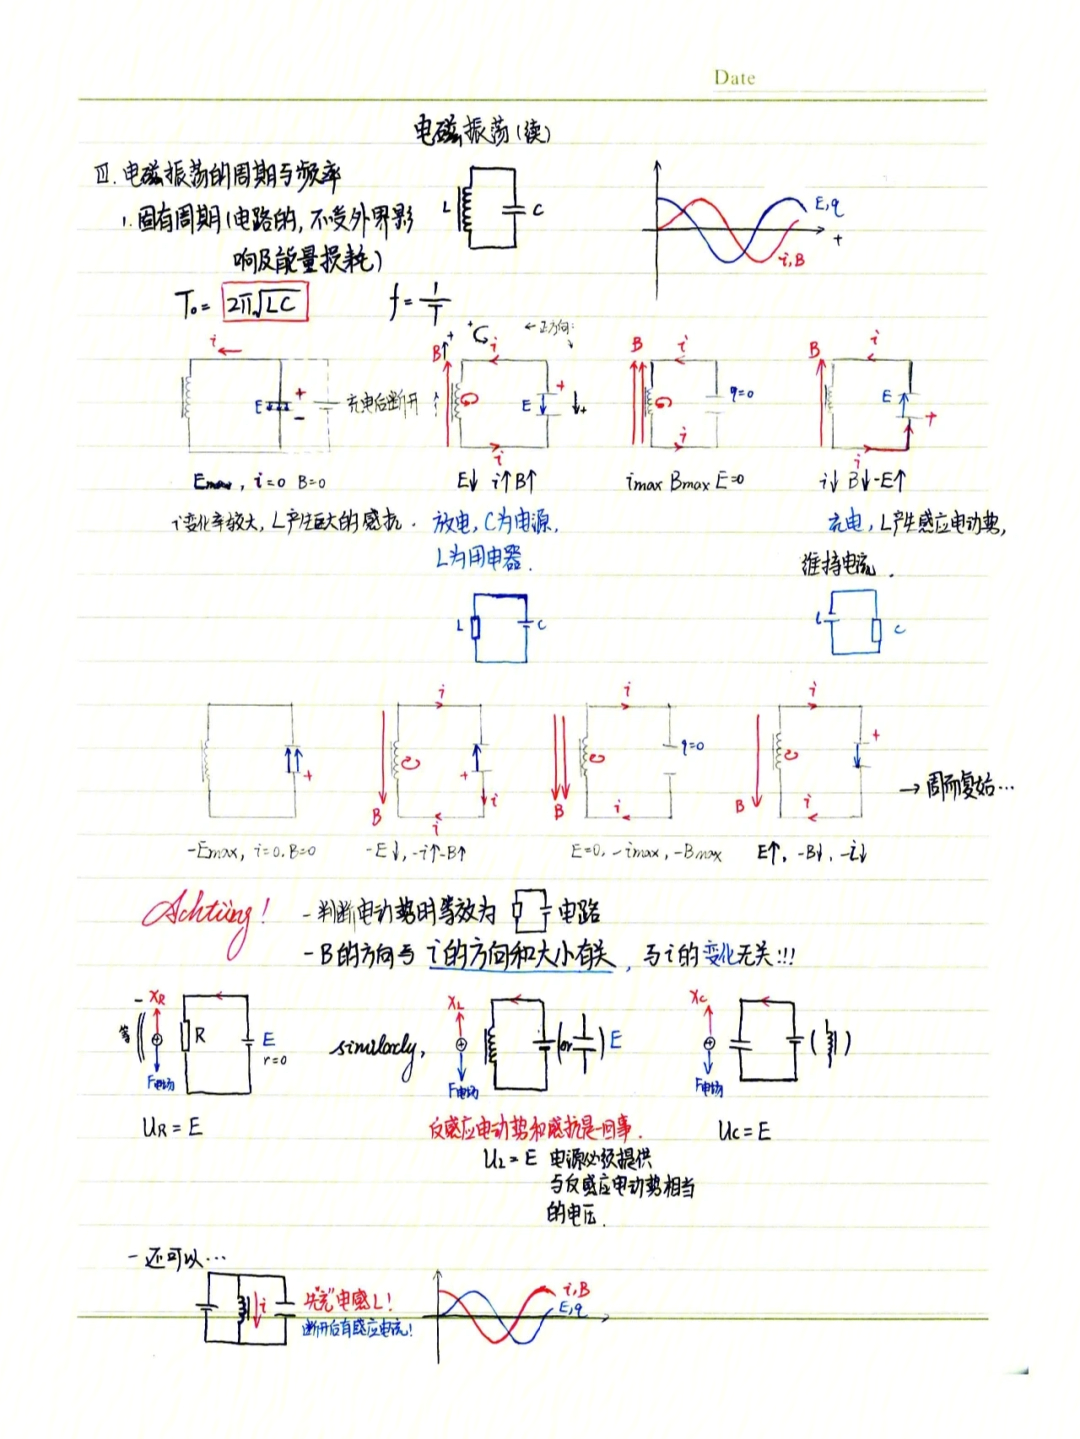 Date
电磁振荡(续)
Ⅲ.电磁振荡的周期与频率
1.固有周期(电路的,不受外界影
响及能量损耗)
L C
E,q
t
i,B
T₀=2π√LC f=1/T
i
E + -
充电后断开
B + i ←正方向
E + +
i
B i q=0
i
B i
E +
i
Emax, i=0 B=0
E↓ i↑B↑
imax Bmax E=0
i↓ B↓-E↑
i变化率较大,L产生巨大的感抗.
放电,C为电源,
L为用电器.
充电,L产生感应电动势,
维持电流.
L C
L C
+
i B + i i
i B q=0 i
i B + i
→周而复始…
-Emax, i=0.B=0
-E↓,-i↑-B↑
E=0,-imax,-Bmax
E↑,-B↓,-i↓
Achtüng!
-判断电动势时等效为 电路
-B的方向与i的方向和大小有关,与i的变化无关!!!
- XR 等 F电场 R E r=0
similarly,
XL F电场 (or ) E
XC F电场 ( )
UR=E
反感应电动势和感抗是一回事.
UL=E 电源必须提供
与反感应电动势相当
的电压.
UC=E
-还可以…
i
先"充"电感L!
断开后有感应电流!
i,B
E,q